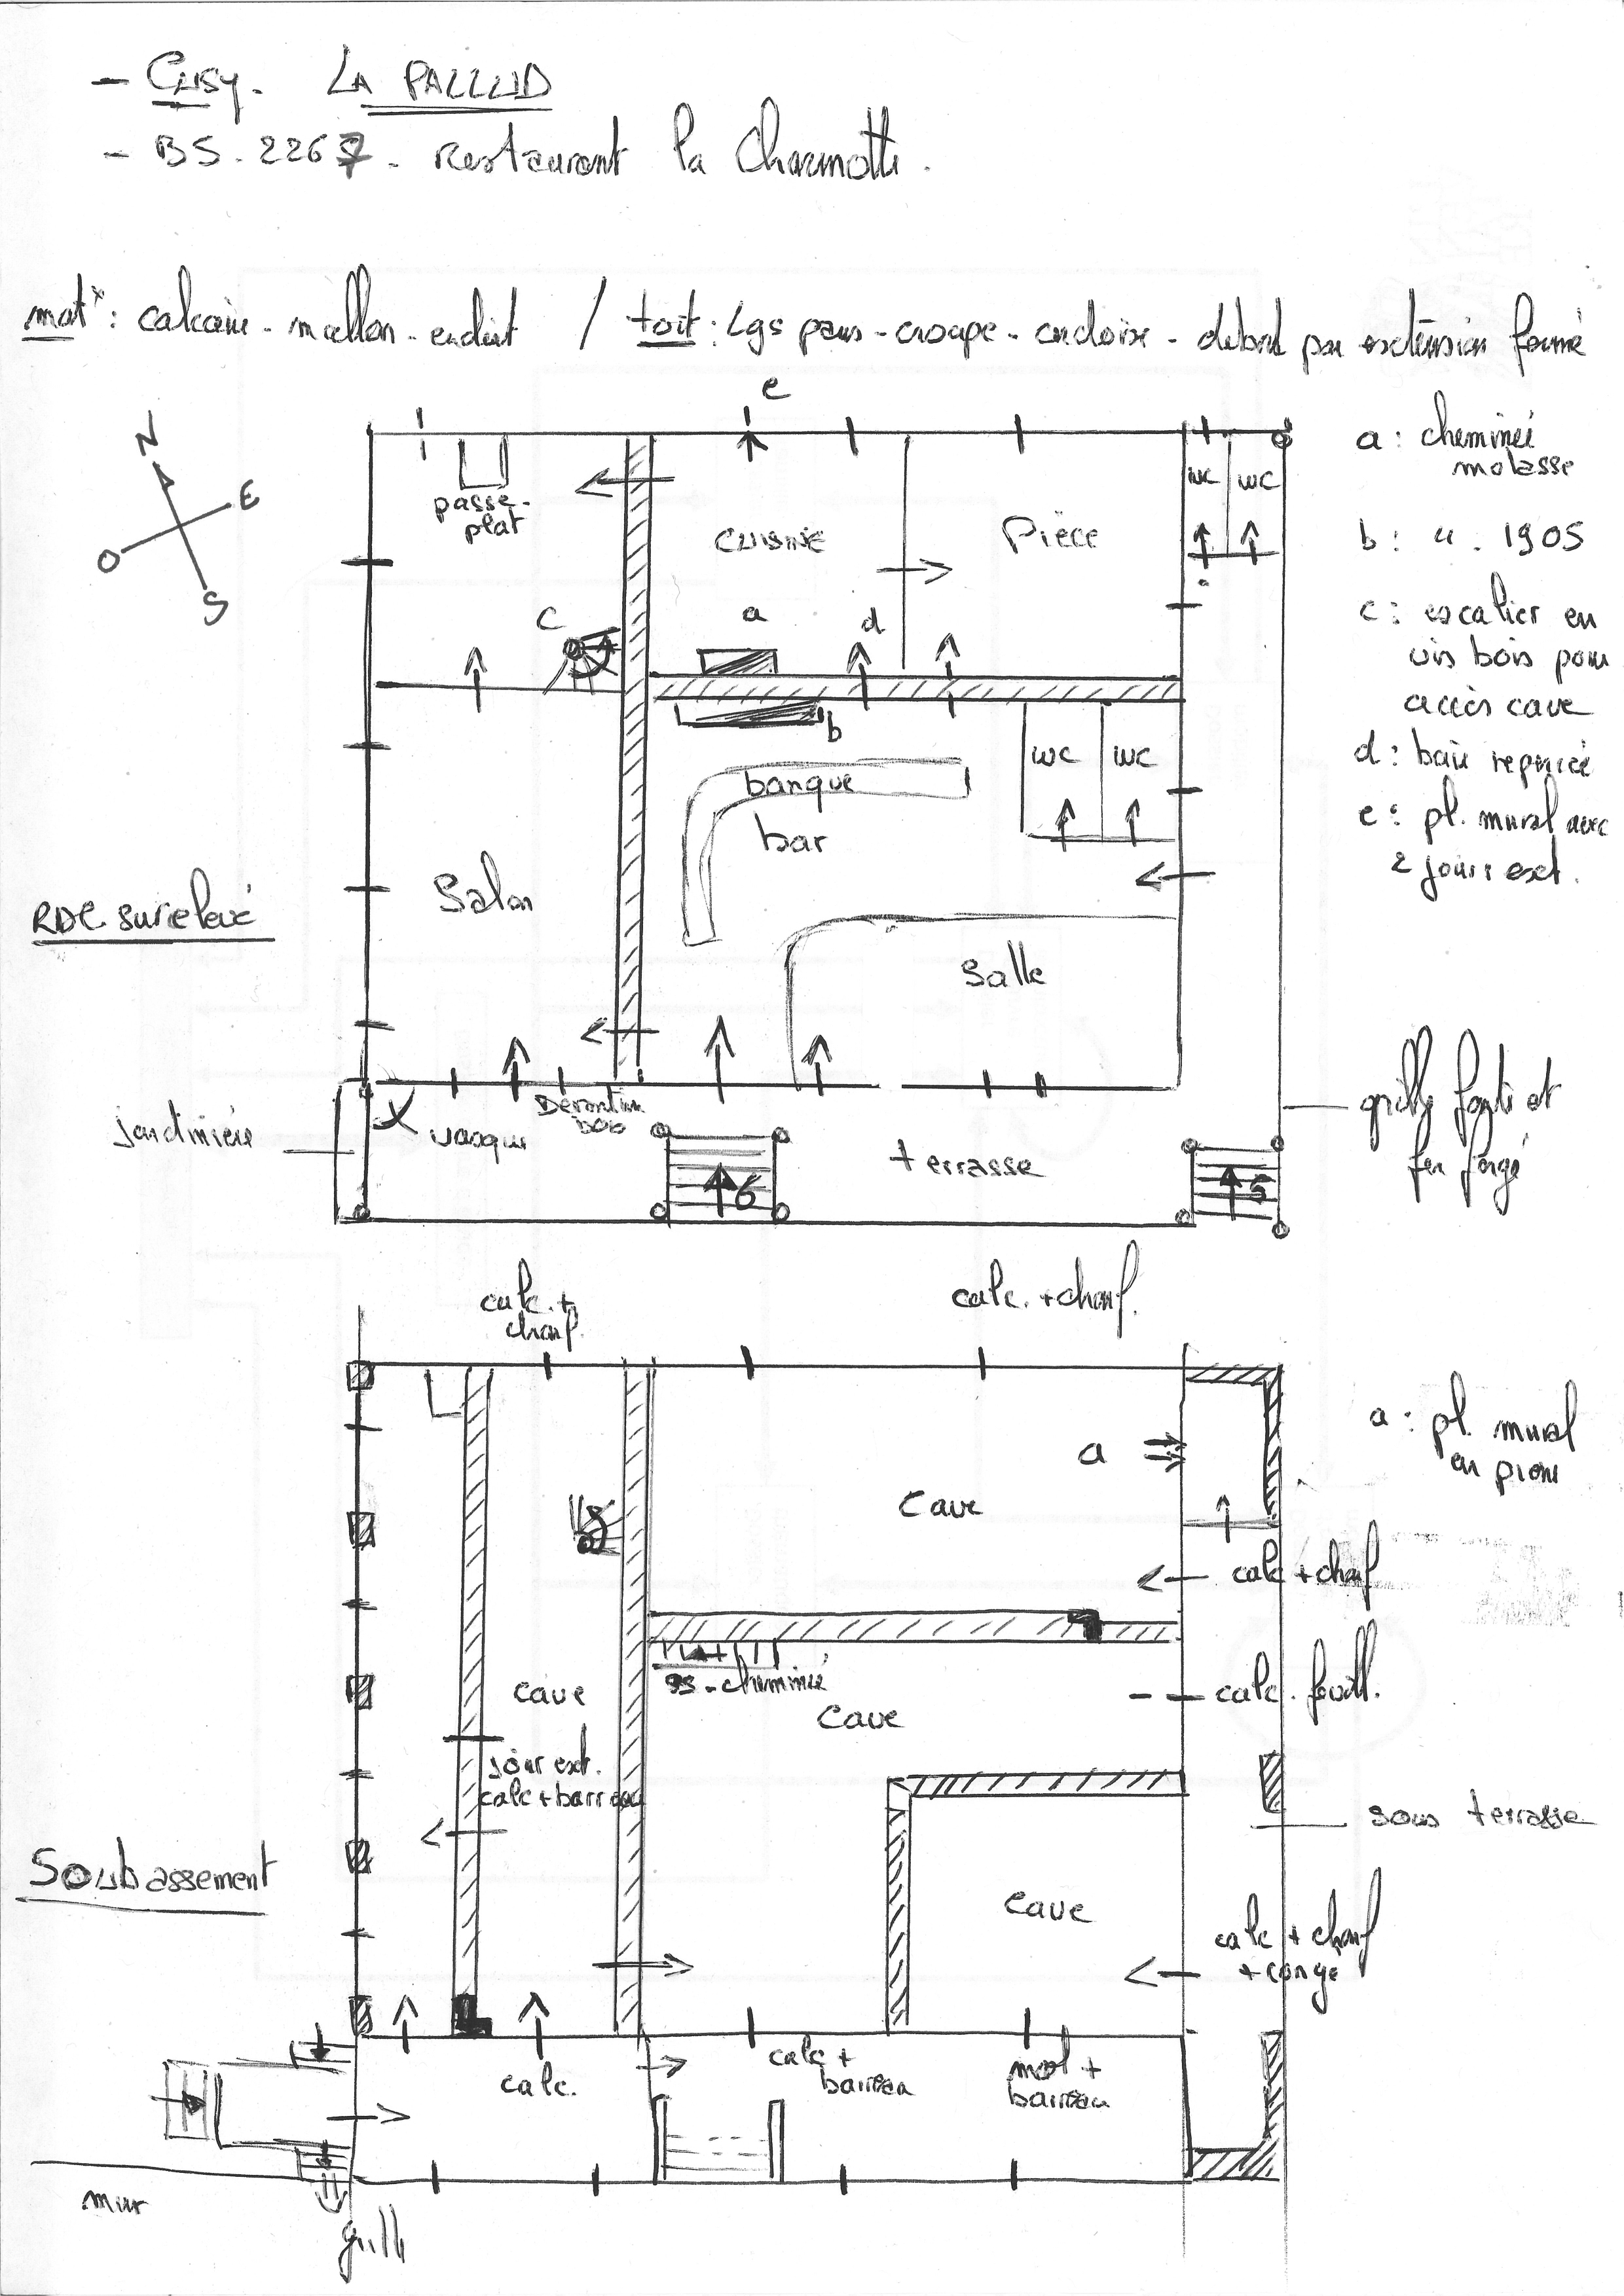 - Cusy. LA PALLUD
- BS. 2267. restaurant la Charmotte.
matx: calcaire - moellon - enduit / toit: Lgs pans - croupe - ardoise - débord par extension fermé
e
N
E
O
S
passe-
plat
cuisine
Pièce
wc wc
c
a
d
b
banque
bar
wc wc
Salon
Salle
RDC surelevé
jardinière
vasque
bois
6
terrasse
5
grille fonte et
fer forgé
a: cheminée
molasse
b: ". 1905
c: escalier en
vis bois pour
accès cave
d: baie repercée
e: pl. mural avec
2 jours ext.
calc. +
chanf.
calc. + chanf.
a: pl. mural
en pierre
a
cave
calc + chanf
ss - cheminée
cave
cave
calc. feuill.
jour ext.
calc + barreau
sous terrasse
Soubassement
cave
calc + chanf
+ congé
calc.
calc +
barreau
mol +
barreau
mur
grille